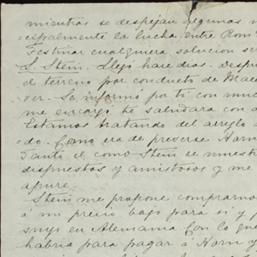 mientras se despejan algunas
cipalmente la lucha entre
Festinar cualquiera solucion
S. Stein. Llegó hace dias. despu
el terreno por conducto de
ver. Se informó po ti con
me encargó te saludara con
Estamos tratando del arreglo
odo. Como era de preverse Horn
Tanto el como Stein se muest
dispuestos y amistosos y me
apure.
Stein me propone comprarme
á un precio bajo para si y
suyo en Alemania con lo que
habria para pagar á Horn y